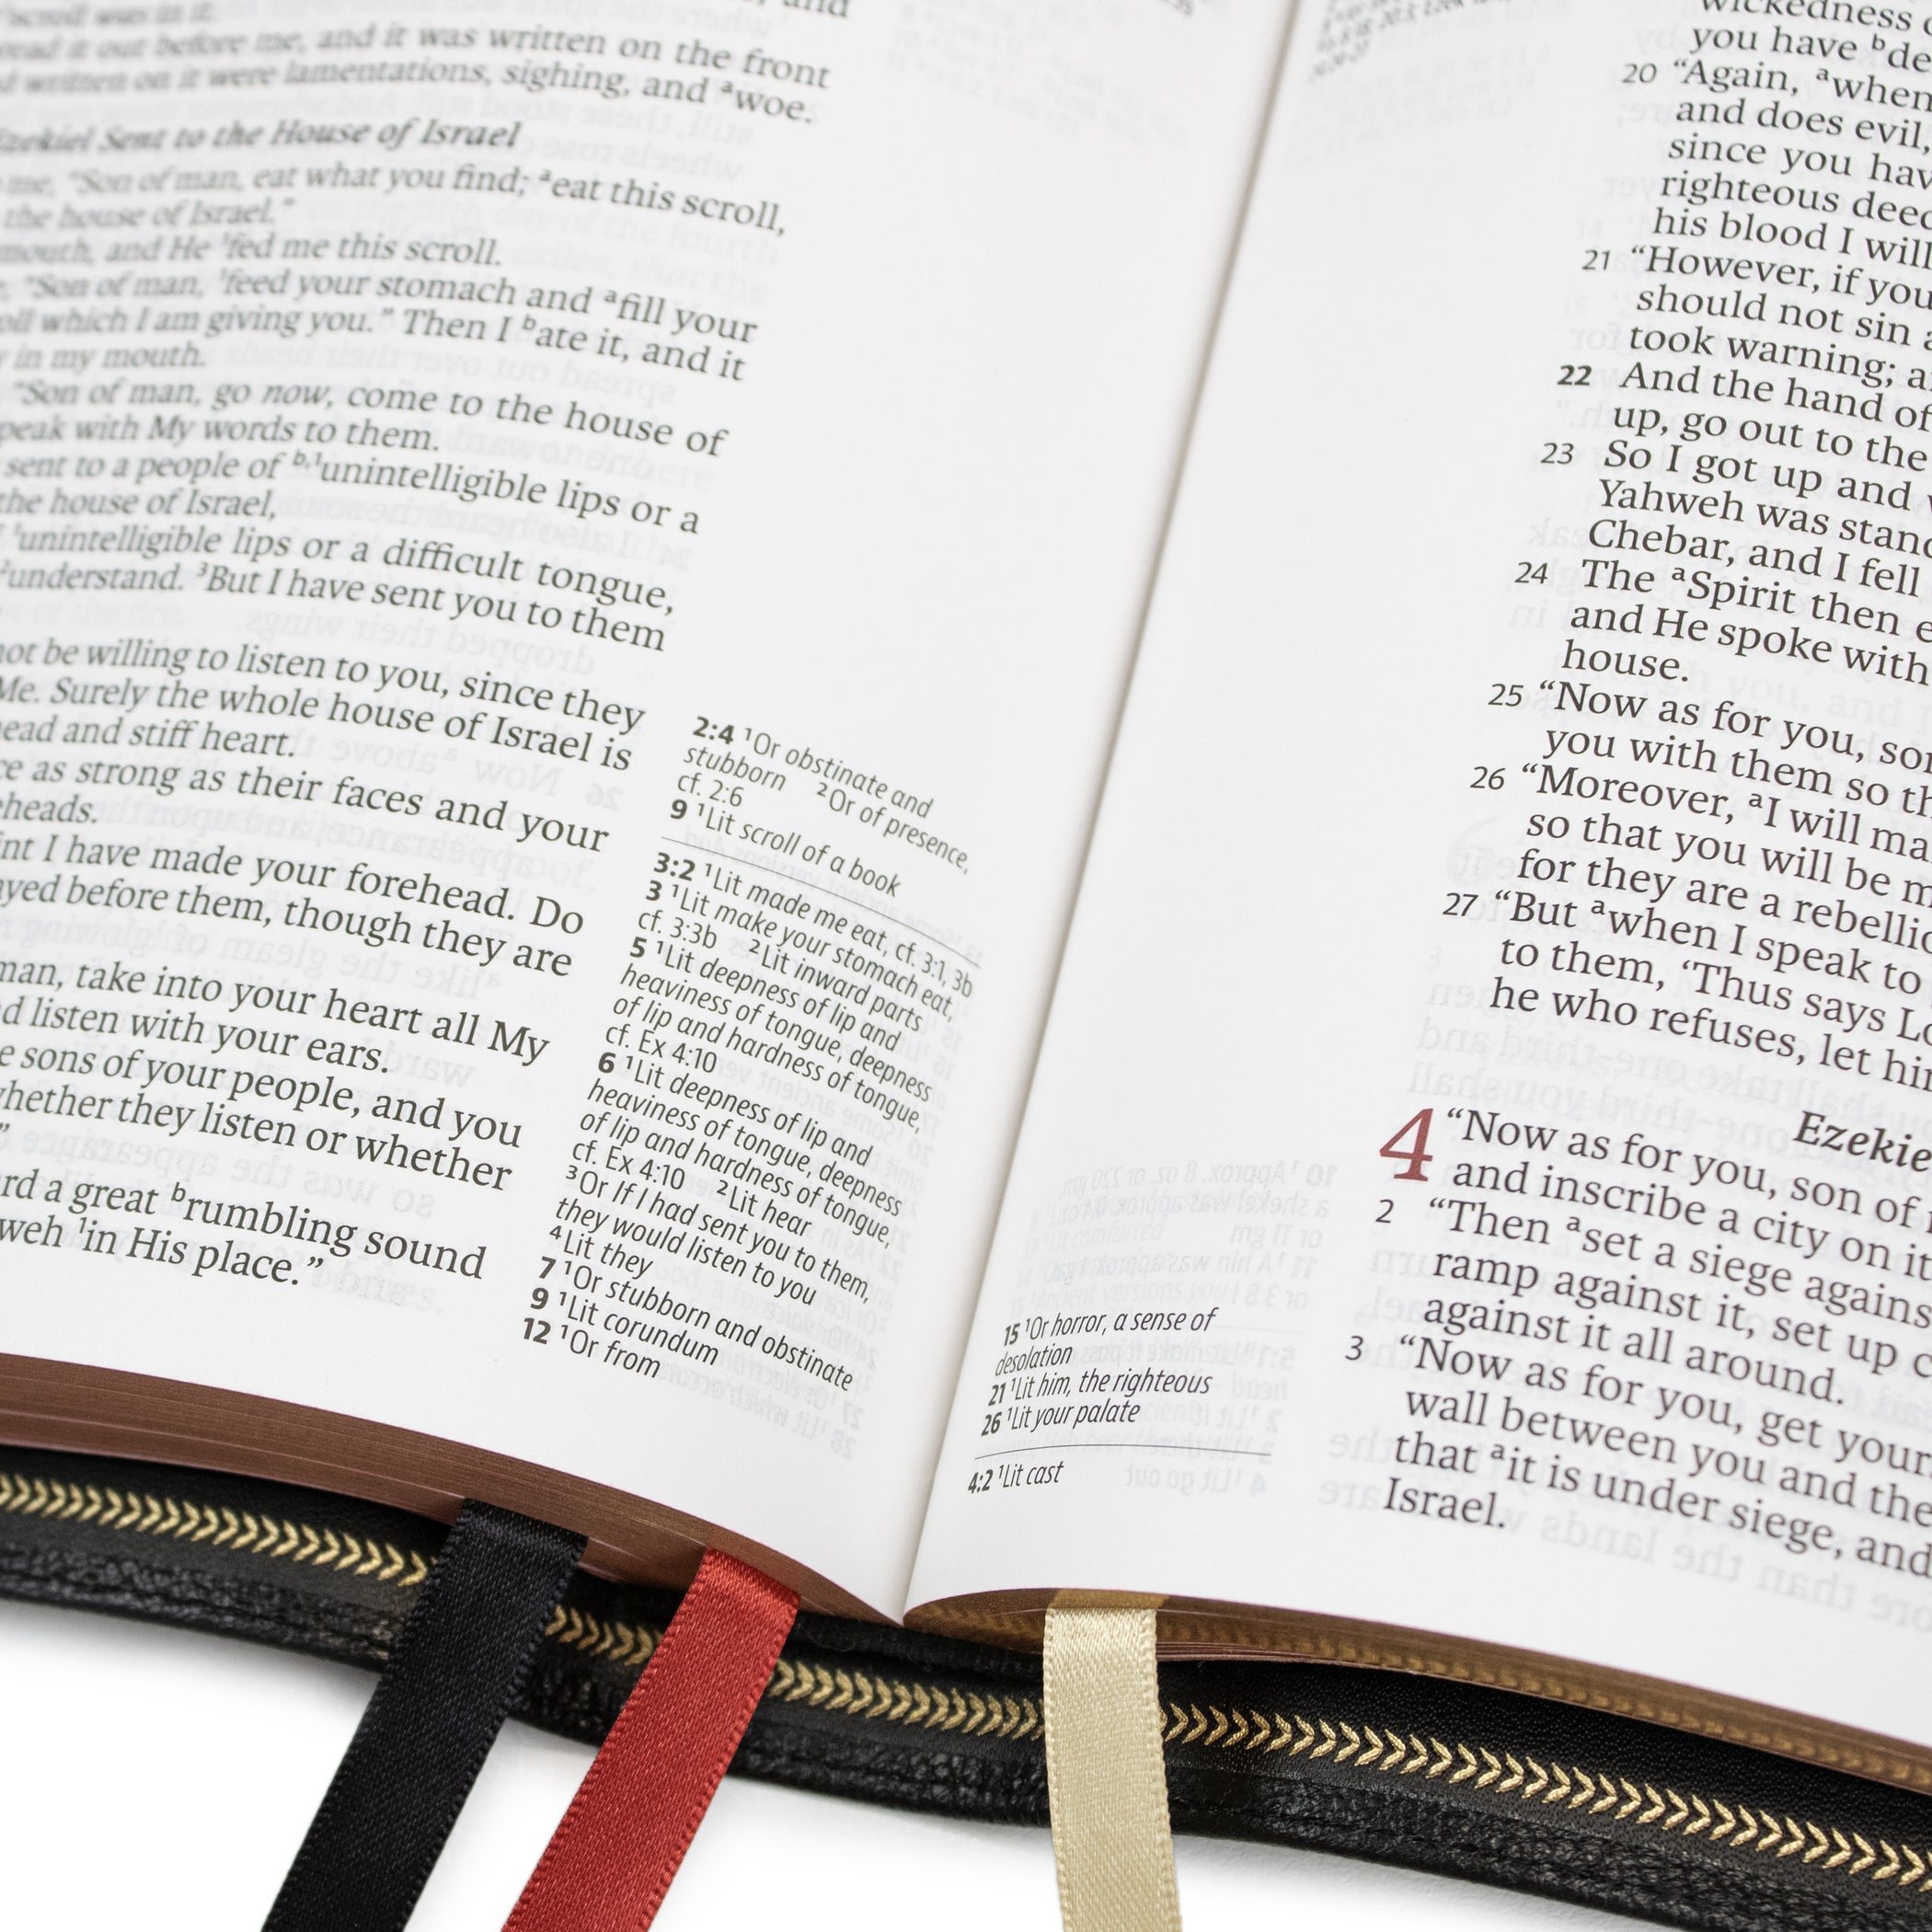 scroll was in it.
it out before me, and it was written on the front
written on it were lamentations, sighing, and ᵃwoe.
Ezekiel Sent to the House of Israel
me, “Son of man, eat what you find; ᵃeat this scroll,
the house of Israel.”
mouth, and He ¹fed me this scroll.
“Son of man, ¹feed your stomach and ᵃfill your
which I am giving you.” Then I ᵇate it, and it
in my mouth.
“Son of man, go now, come to the house of
speak with My words to them.
sent to a people of ᵇ,¹unintelligible lips or a
the house of Israel,
¹unintelligible lips or a difficult tongue,
²understand. ³But I have sent you to them
not be willing to listen to you, since they
Me. Surely the whole house of Israel is
and stiff heart.
as strong as their faces and your
I have made your forehead. Do
before them, though they are
man, take into your heart all My
listen with your ears.
sons of your people, and you
whether they listen or whether
”
a great ᵇrumbling sound
¹in His place.”
2:4 ¹Or obstinate and
stubborn ²Or of presence,
cf. 2:6
9 ¹Lit scroll of a book
3:2 ¹Lit made me eat, cf. 3:1, 3b
3 ¹Lit make your stomach eat,
cf. 3:3b ²Lit inward parts
5 ¹Lit deepness of lip and
heaviness of tongue, deepness
of lip and hardness of tongue,
cf. Ex 4:10
6 ¹Lit deepness of lip and
heaviness of tongue, deepness
of lip and hardness of tongue,
cf. Ex 4:10 ²Lit hear
³Or If I had sent you to them,
they would listen to you
⁴Lit they
7 ¹Or stubborn and obstinate
9 ¹Lit corundum
12 ¹Or from
15 ¹Or horror, a sense of
desolation
21 ¹Lit him, the righteous
26 ¹Lit your palate
4:2 ¹Lit cast
wickedness
you have ᵇde
20 “Again, ᵃwhen
and does evil,
since you hav
righteous deed
his blood I will
21 “However, if you
should not sin a
took warning; a
22 And the hand of
up, go out to the
23 So I got up and
Yahweh was stand
Chebar, and I fell
24 The ᵃSpirit then e
and He spoke with
house.
25 “Now as for you, so
you with them so th
26 “Moreover, ᵃI will ma
so that you will be m
for they are a rebellio
27 “But ᵃwhen I speak to
to them, ‘Thus says Lo
he who refuses, let hi
Ezekie
4 “Now as for you, son of
and inscribe a city on it
2 “Then ᵃset a siege agains
ramp against it, set up c
against it all around.
3 “Now as for you, get your
wall between you and the
that ᵃit is under siege, and
Israel.